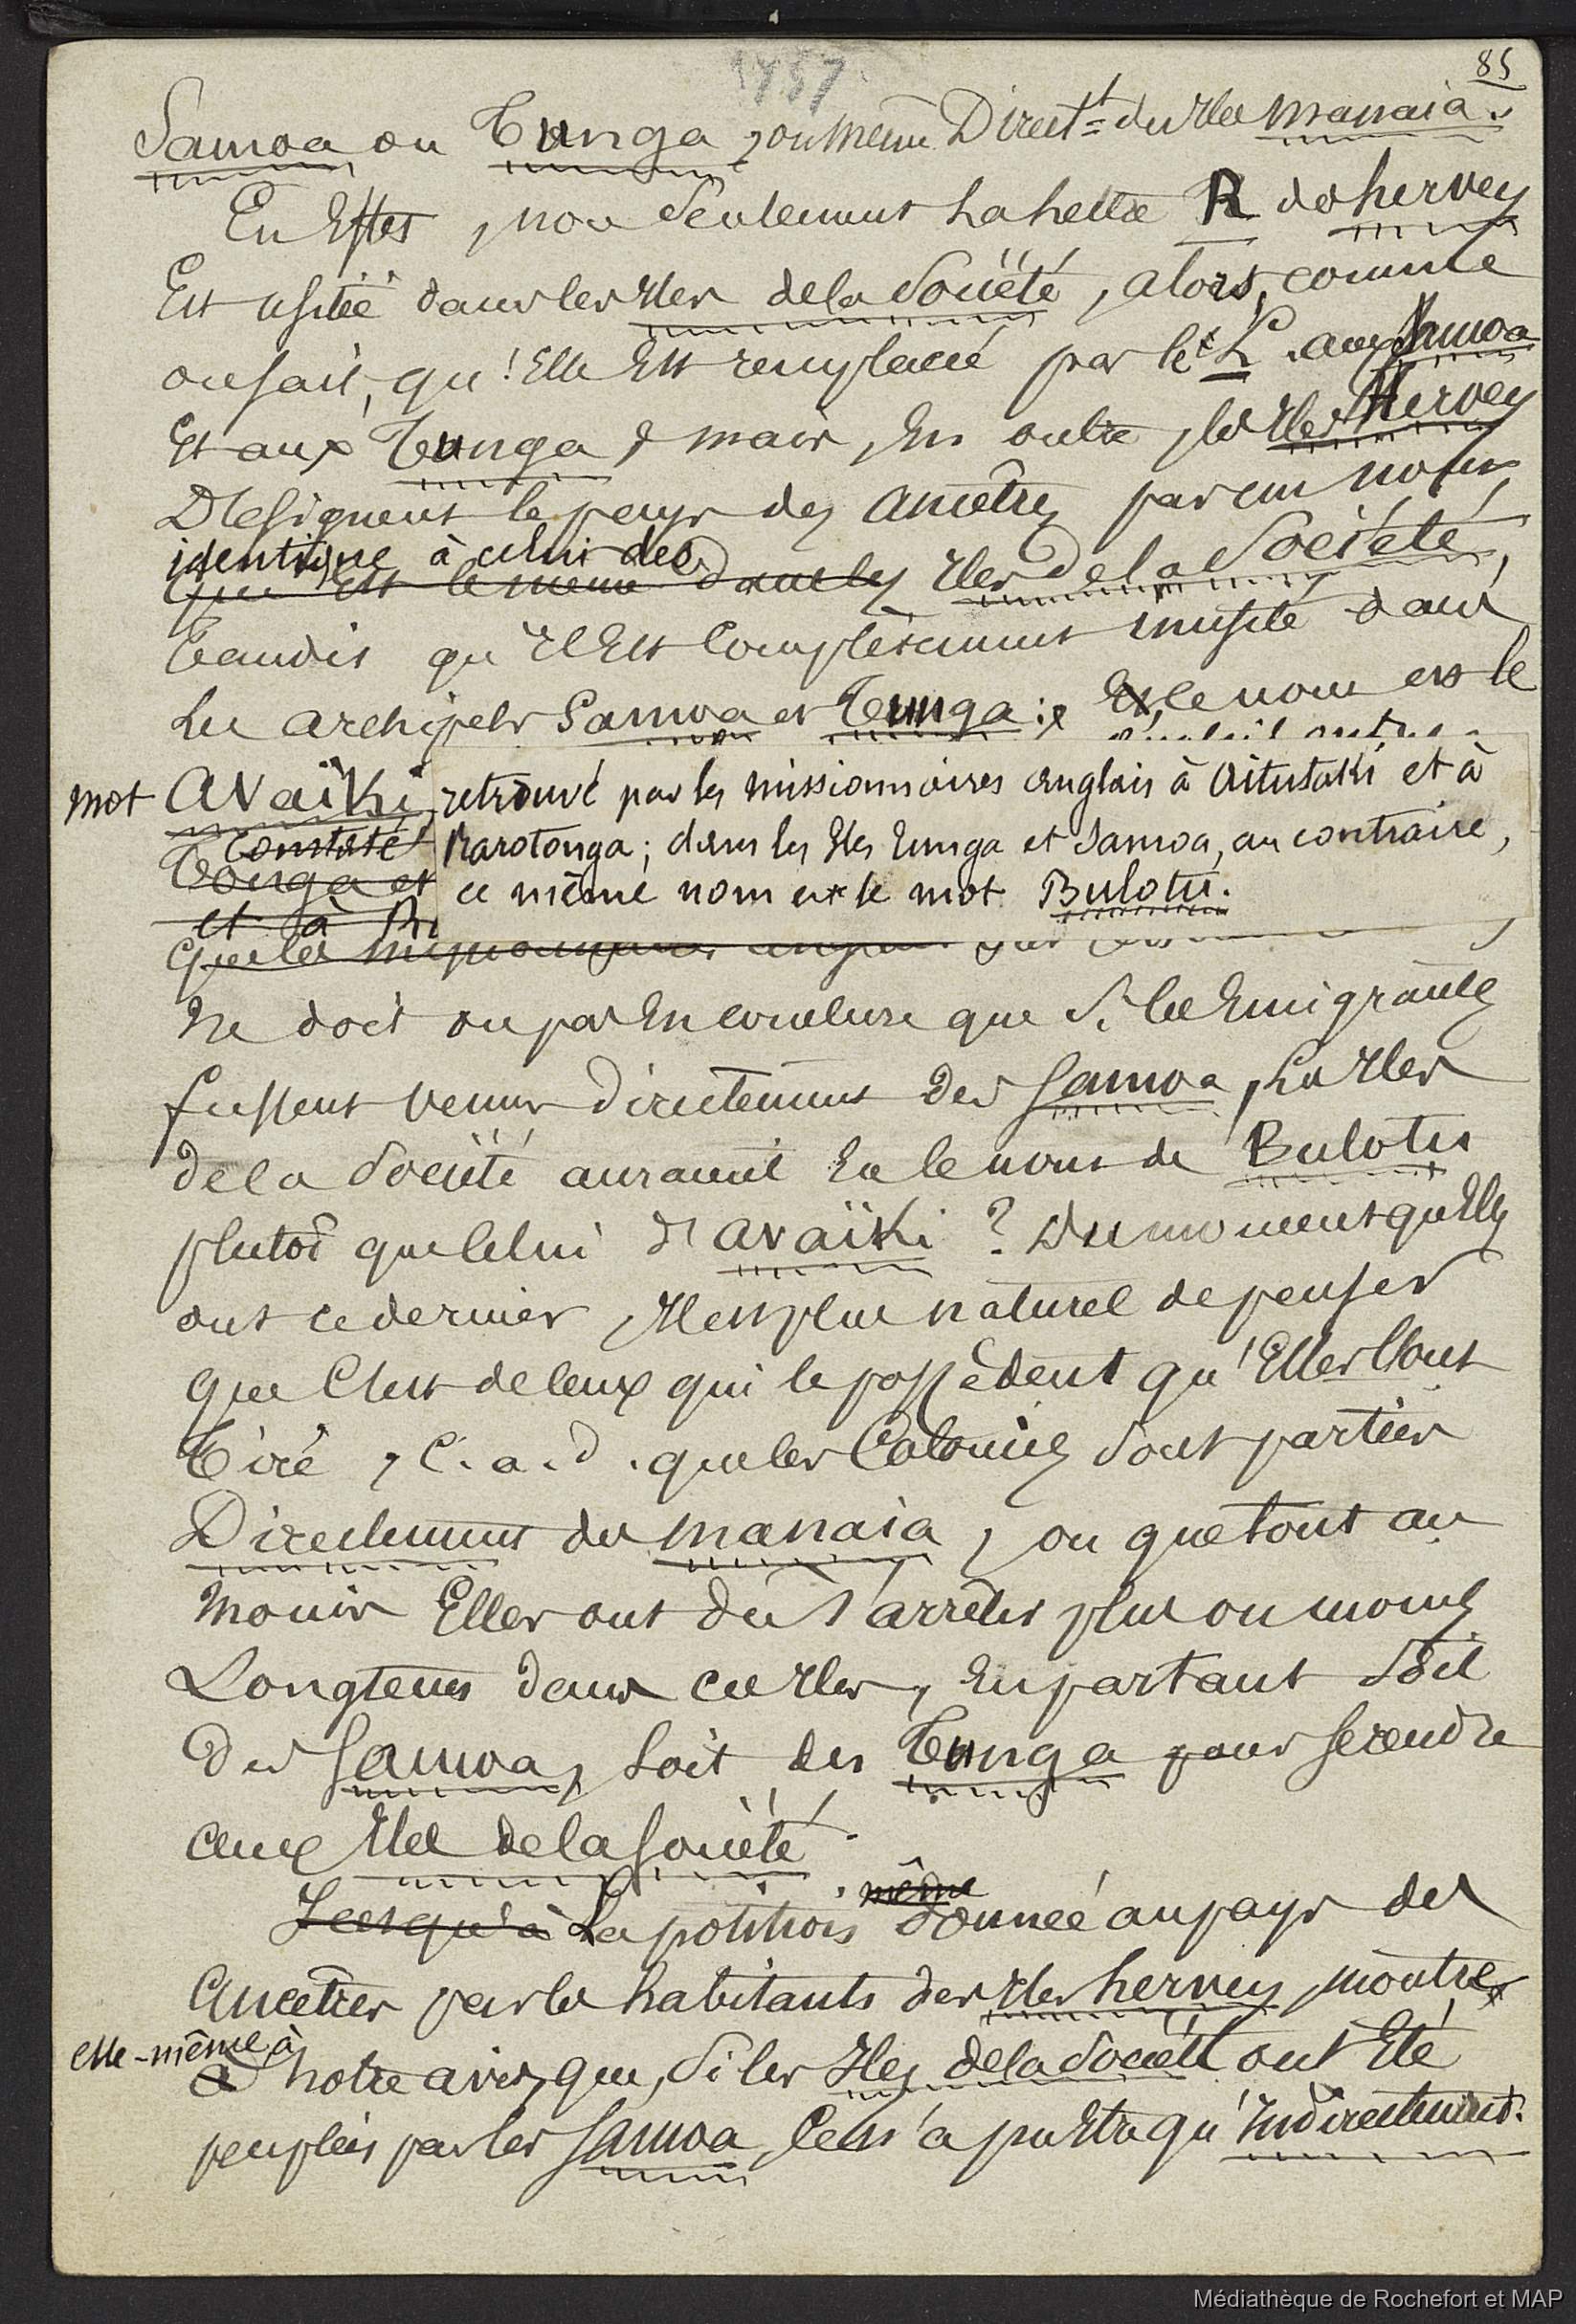 85
1457.
Samoa ou Tunga, ou même Direct.t des Iles Manaia.
En Effet, non seulement la lettre R des hervey
Est usitée dans les Iles de la Société, alors, comme
on sait, qu'Elle Est remplacée par l'L aux Samoa
Et aux Tunga, mais, En outre, les Iles Hervey
Désignent le pays des ancêtres par un nom
identique à celui des
que Est le même dans les Iles de la Société,
tandis qu'Il Est Complètement inusité dans
les archipels Samoa et Tunga: Ce nom est le
mot Avaïki, retrouvé par les missionnaires anglais à Aitutaki et à
Constaté
Tonga et
Rarotonga; dans les Iles Tunga et Samoa, au contraire,
ce même nom est le mot Bulotu.
et à R
que les missionnaires anglais
Ne doit on pas En conclure que si les Emigrants
fussent venus Directement des Samoa, les Iles
de la Société auraient Eu le nom de Bulotu
plutôt que Celui d'avaïki? Du moment qu'Elles
ont ce dernier, Il est plus naturel de penser
que C'est de ceux qui le possèdent qu'Elles l'ont
tiré, C.a.d. que les Colonies sont parties
Directement des manaia, ou que tout au
Moins Elles ont dû s'arrêter plus ou moins
Longtems dans ces Iles, En partant soit
Des Samoa, soit des Tunga pour se rendre
aux Iles de la Société.
Jusqu'à La position même donnée au pays des
Ancêtres par les habitants des Iles hervey, montre,
elle-même à
à notre avis, que, si les Iles de la Société ont Eté
peuplées par les Samoa, Ce n'a pu Etre qu'Indirectement.
Médiathèque de Rochefort et MAP